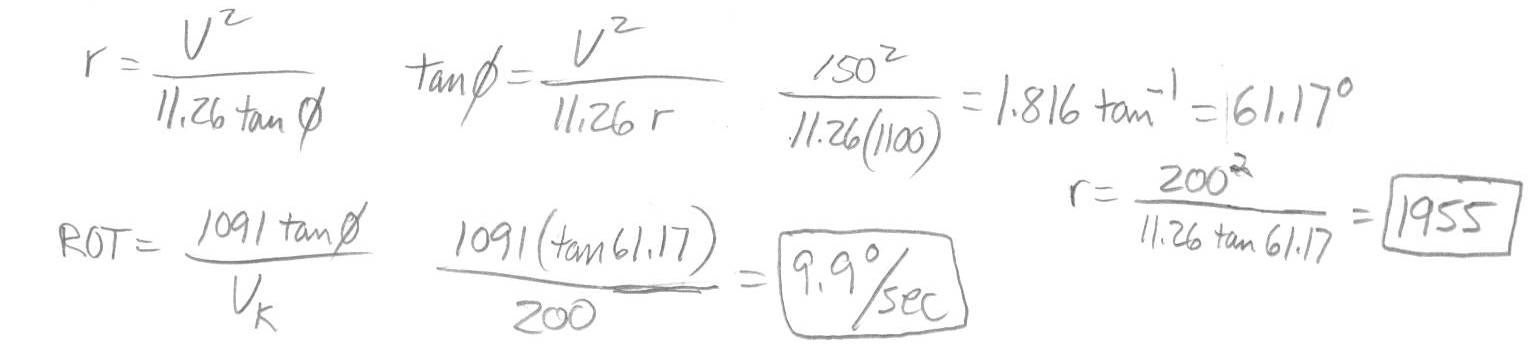 r = V² / 11.26 tan ϕ    tan ϕ = V² / 11.26 r    150² / 11.26(1100) = 1.816 tan⁻¹ = 61.17°
r = 200² / 11.26 tan 61.17 = 1955
ROT = 1091 tan ϕ / V_K    1091(tan 61.17) / 200 = 9.9°/sec